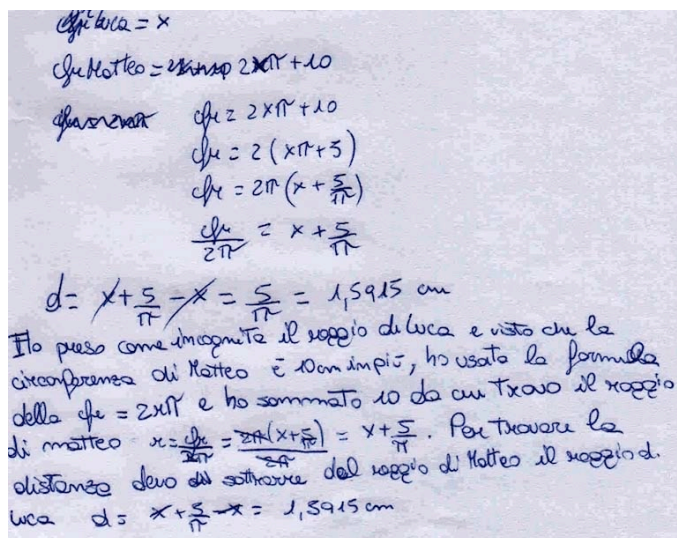 cfr Luca = x
cfr Matteo = 2xπ + 10
cfr = 2xπ + 10
cfr = 2(xπ + 5)
cfr = 2π(x + 5/π)
cfr/2π = x + 5/π
d = x + 5/π - x = 5/π = 1,5915 cm
Ho preso come incognita il raggio di Luca e visto che la
circonferenza di Matteo è 10 cm in più, ho usato la formula
della cfr = 2rπ e ho sommato 10 da cui trovo il raggio
di matteo r = cfr/2π = 2π(x + 5/π)/2π = x + 5/π . Per trovare la
distanza devo sottrarre dal raggio di Matteo il raggio di
Luca d = x + 5/π - x = 1,5915 cm